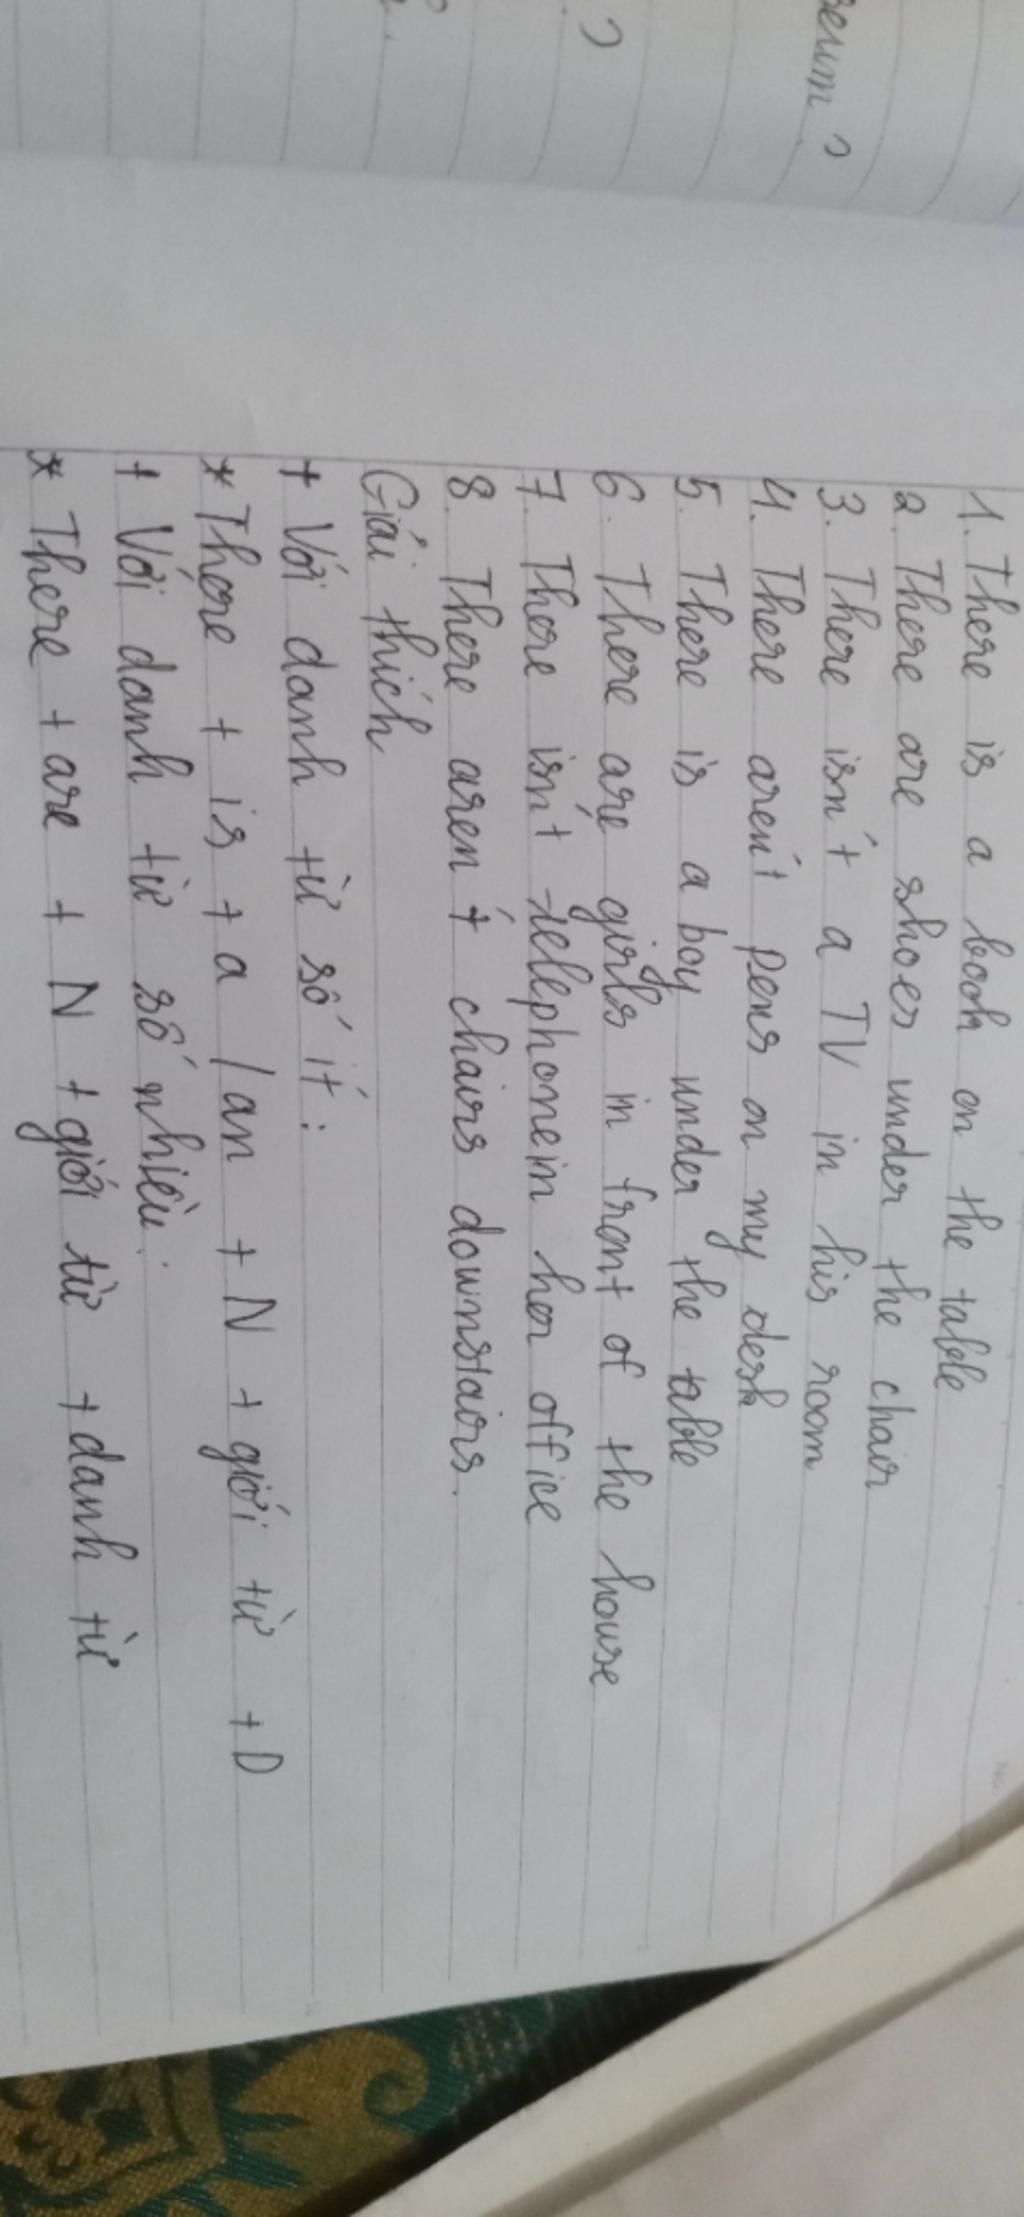 seum ?
?
1. There is a book on the table
2. There are shoes under the chair
3. There isn't a TV in his room
4. There aren't pens on my desk
5. There is a boy under the table
6. There are girls in front of the house
7. There isn't telephone in her office
8. There aren't chairs downstairs.
Giải thích
+ Với danh từ số ít:
* There + is + a / an + N + giới từ + D
+ Với danh từ số nhiều:
* There + are + N + giới từ + danh từ